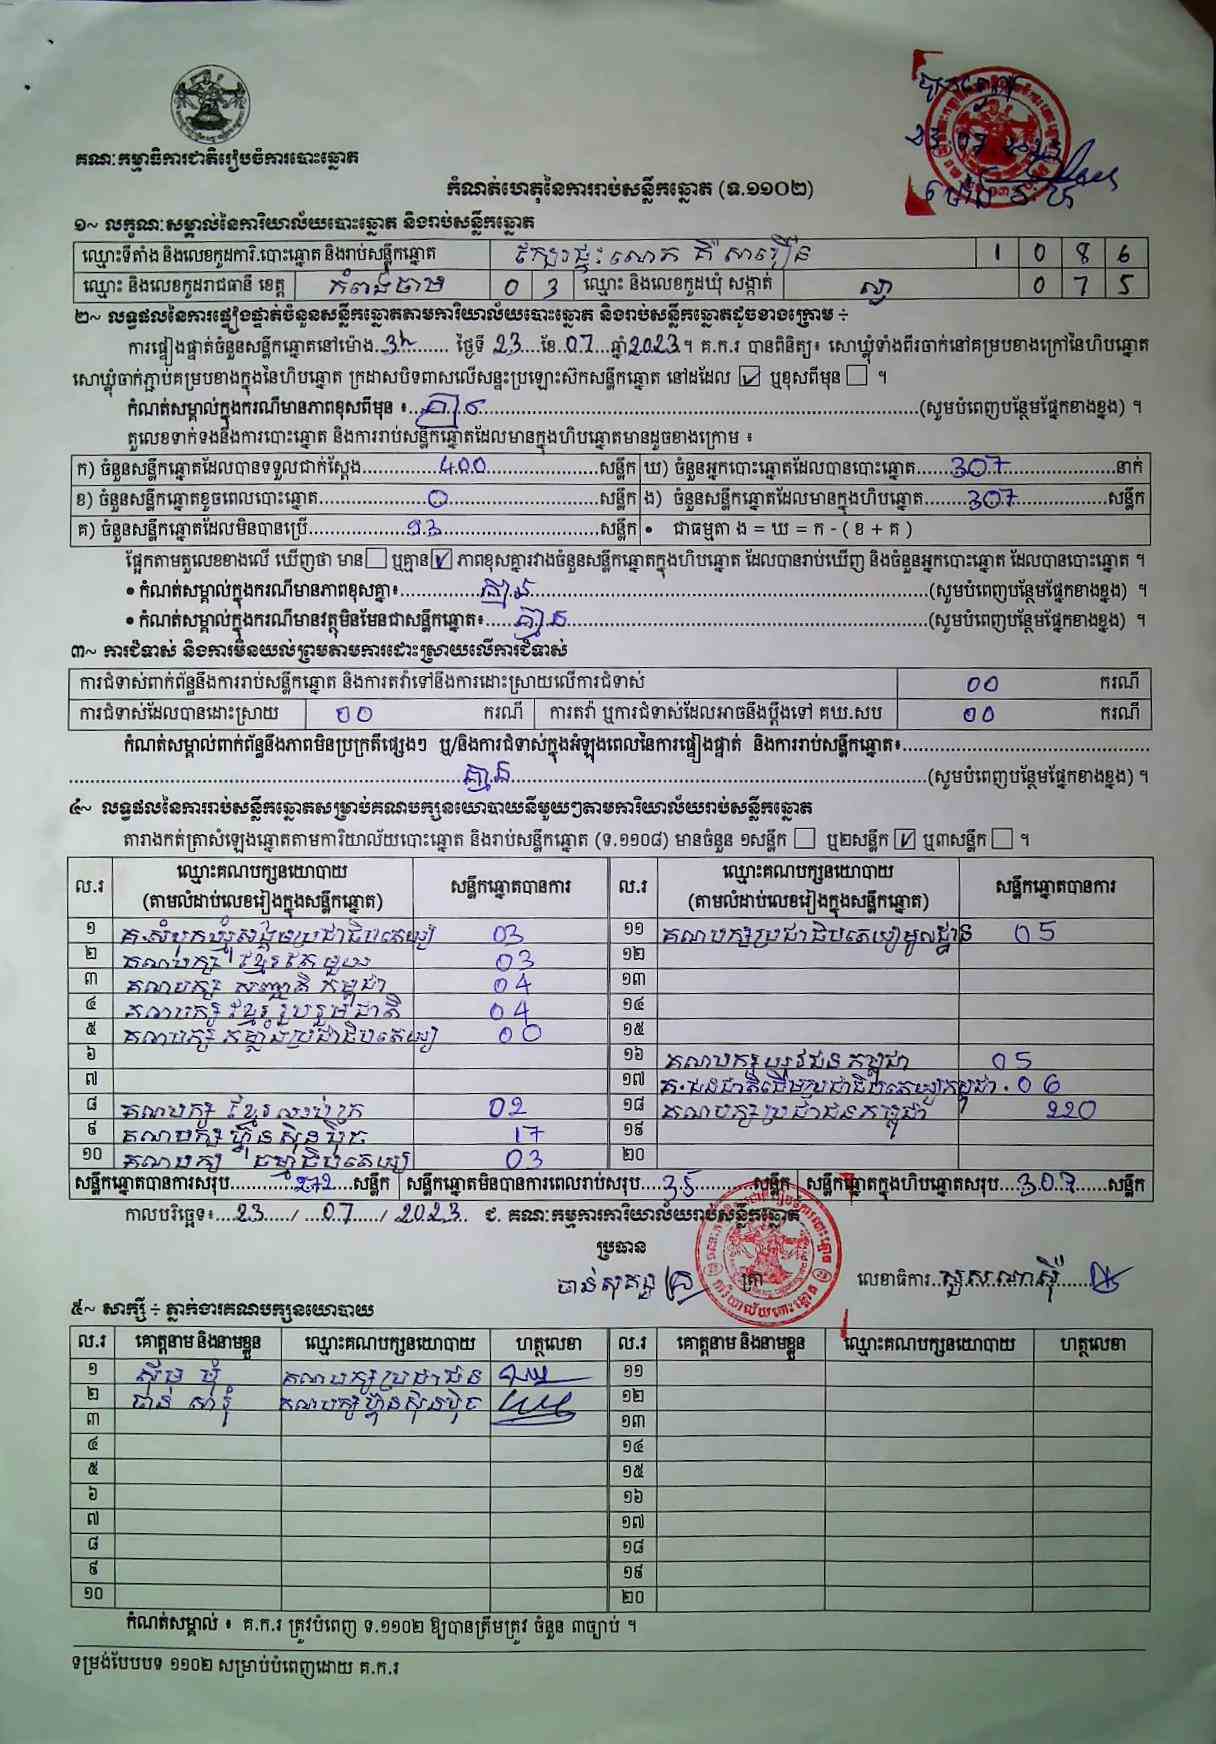 គណៈកម្មាធិការជាតិរៀបចំការបោះឆ្នោត
កំណត់ហេតុនៃការរាប់សន្លឹកឆ្នោត (ទ.១១០២)
១~ លក្ខណៈសម្គាល់នៃការិយាល័យបោះឆ្នោត និងរាប់សន្លឹកឆ្នោត
ឈ្មោះទីតាំង និងលេខកូដការិ.បោះឆ្នោត និងរាប់សន្លឹកឆ្នោត 1 0 8 6
ឈ្មោះ និងលេខកូដរាជធានី ខេត្ត កំពង់ចាម 0 3 ឈ្មោះ និងលេខកូដឃុំ សង្កាត់ 0 7 5
២~ លទ្ធផលនៃការផ្ទៀងផ្ទាត់ចំនួនសន្លឹកឆ្នោតតាមការិយាល័យបោះឆ្នោត និងរាប់សន្លឹកឆ្នោតដូចខាងក្រោម ÷
ការផ្ទៀងផ្ទាត់ចំនួនសន្លឹកឆ្នោតនៅម៉ោង..3h.......... ថ្ងៃទី 23....ខែ.07....ឆ្នាំ2023។ គ.ក.រ បានពិនិត្យ៖ សោឃ្លុំទាំងពីរចាក់នៅគម្របខាងក្រៅនៃហិបឆ្នោត
សោឃ្លុំចាក់ភ្ជាប់គម្របខាងក្នុងនៃហិបឆ្នោត ក្រដាសបិទពាសលើសន្ទះប្រឡោះស៊កសន្លឹកឆ្នោត នៅដដែល ☑ ឬខុសពីមុន ☐ ។
កំណត់សម្គាល់ក្នុងករណីមានភាពខុសពីមុន ៖...គ្មាន..........(សូមបំពេញបន្ថែមផ្នែកខាងខ្នង) ។
តួលេខទាក់ទងនឹងការបោះឆ្នោត និងការរាប់សន្លឹកឆ្នោតដែលមានក្នុងហិបឆ្នោតមានដូចខាងក្រោម ៖
ក) ចំនួនសន្លឹកឆ្នោតដែលបានទទួលជាក់ស្តែង..........400..........សន្លឹក ឃ) ចំនួនអ្នកបោះឆ្នោតដែលបានបោះឆ្នោត......307..........នាក់
ខ) ចំនួនសន្លឹកឆ្នោតខូចពេលបោះឆ្នោត..........0..........សន្លឹក ង) ចំនួនសន្លឹកឆ្នោតដែលមានក្នុងហិបឆ្នោត......307..........សន្លឹក
គ) ចំនួនសន្លឹកឆ្នោតដែលមិនបានប្រើ..........93..........សន្លឹក • ជាធម្មតា ង = ឃ = ក - ( ខ + គ )
ផ្អែកតាមតួលេខខាងលើ ឃើញថា មាន ☐ ឬគ្មាន ☑ ភាពខុសគ្នារវាងចំនួនសន្លឹកឆ្នោតក្នុងហិបឆ្នោត ដែលបានរាប់ឃើញ និងចំនួនអ្នកបោះឆ្នោត ដែលបានបោះឆ្នោត ។
• កំណត់សម្គាល់ក្នុងករណីមានភាពខុសគ្នា៖..........គ្មាន..........(សូមបំពេញបន្ថែមផ្នែកខាងខ្នង) ។
• កំណត់សម្គាល់ក្នុងករណីមានវត្ថុមិនមែនជាសន្លឹកឆ្នោត៖......គ្មាន..........(សូមបំពេញបន្ថែមផ្នែកខាងខ្នង) ។
៣~ ការជំទាស់ និងការមិនយល់ព្រមតាមការដោះស្រាយលើការជំទាស់
ការជំទាស់ពាក់ព័ន្ធនឹងការរាប់សន្លឹកឆ្នោត និងការតវ៉ាទៅនឹងការដោះស្រាយលើការជំទាស់ 00 ករណី
ការជំទាស់ដែលបានដោះស្រាយ 00 ករណី ការតវ៉ា ឬការជំទាស់ដែលអាចនឹងប្តឹងទៅ គឃ.សប 00 ករណី
កំណត់សម្គាល់ពាក់ព័ន្ធនឹងភាពមិនប្រក្រតីផ្សេងៗ ឬ/និងការជំទាស់ក្នុងអំឡុងពេលនៃការផ្ទៀងផ្ទាត់ និងការរាប់សន្លឹកឆ្នោត៖..........
..........គ្មាន..........(សូមបំពេញបន្ថែមផ្នែកខាងខ្នង) ។
៤~ លទ្ធផលនៃការរាប់សន្លឹកឆ្នោតសម្រាប់គណបក្សនយោបាយនីមួយៗតាមការិយាល័យរាប់សន្លឹកឆ្នោត
តារាងកត់ត្រាសំឡេងឆ្នោតតាមការិយាល័យបោះឆ្នោត និងរាប់សន្លឹកឆ្នោត (ទ.១១០៨) មានចំនួន ១សន្លឹក ☐ ឬ២សន្លឹក ☑ ឬ៣សន្លឹក ☐ ។
ល.រ ឈ្មោះគណបក្សនយោបាយ (តាមលំដាប់លេខរៀងក្នុងសន្លឹកឆ្នោត) សន្លឹកឆ្នោតបានការ ល.រ ឈ្មោះគណបក្សនយោបាយ (តាមលំដាប់លេខរៀងក្នុងសន្លឹកឆ្នោត) សន្លឹកឆ្នោតបានការ
១ គ.សំបុកឃ្មុំសង្គមប្រជាធិបតេយ្យ 03 ១១ គណបក្សប្រជាធិបតេយ្យមូលដ្ឋាន 05
២ គណបក្ស ខ្មែរតែមួយ 03 ១២
៣ គណបក្ស សញ្ជាតិ កម្ពុជា 04 ១៣
៤ គណបក្ស ខ្មែរ រួបរួមជាតិ 04 ១៤
៥ គណបក្ស កម្លាំងប្រជាធិបតេយ្យ 00 ១៥
៦ ១៦ គណបក្ស យុវជន កម្ពុជា 05
៧ ១៧ គ.ជនជាតិដើមប្រជាធិបតេយ្យកម្ពុជា 06
៨ គណបក្ស ខ្មែរ 02 ១៨ គណបក្ស ប្រជាជនកម្ពុជា 220
៩ គណបក្ស ហ៊្វុនស៊ិនប៉ិច 17 ១៩
១០ គណបក្ស ធម្មាធិបតេយ្យ 03 ២០
សន្លឹកឆ្នោតបានការសរុប..........272....សន្លឹក សន្លឹកឆ្នោតមិនបានការពេលរាប់សរុប....35..........សន្លឹក សន្លឹកឆ្នោតក្នុងហិបឆ្នោតសរុប...307......សន្លឹក
កាលបរិច្ឆេទ៖...23..../...07..../ 2023.. ជ. គណៈកម្មការការិយាល័យរាប់សន្លឹកឆ្នោត
ប្រធាន
ត្រា លេខាធិការ..........
៥~ សាក្សី ÷ ភ្នាក់ងារគណបក្សនយោបាយ
ល.រ គោត្តនាម និងនាមខ្លួន ឈ្មោះគណបក្សនយោបាយ ហត្ថលេខា ល.រ គោត្តនាម និងនាមខ្លួន ឈ្មោះគណបក្សនយោបាយ ហត្ថលេខា
១ គណបក្ស ប្រជាជន ១១
២ គណបក្ស ហ៊្វុនស៊ិនប៉ិច ១២
៣ ១៣
៤ ១៤
៥ ១៥
៦ ១៦
៧ ១៧
៨ ១៨
៩ ១៩
១០ ២០
កំណត់សម្គាល់ ៖ គ.ក.រ ត្រូវបំពេញ ទ.១១០២ ឱ្យបានត្រឹមត្រូវ ចំនួន ៣ច្បាប់ ។
ទម្រង់បែបបទ ១១០២ សម្រាប់បំពេញដោយ គ.ក.រ